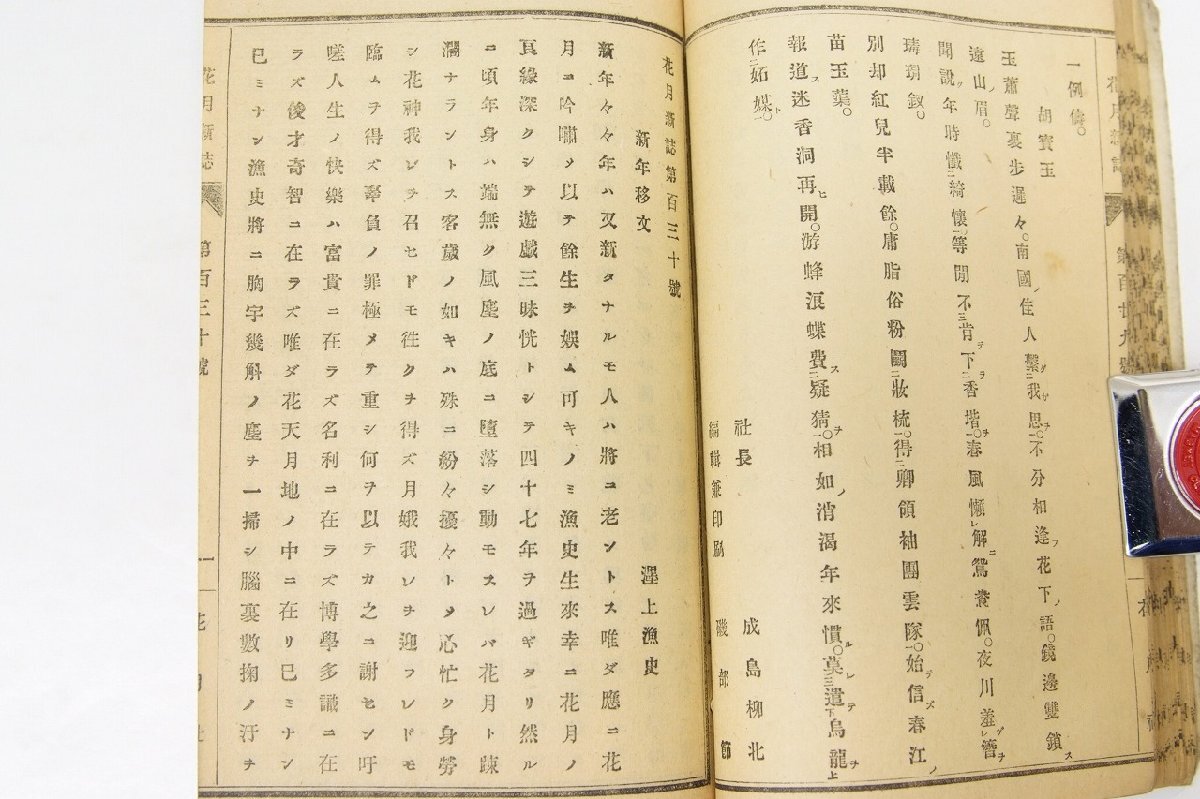 花月新誌
第百廿九號
一例儔。
胡寶玉
玉蕭聲裏步遲々。南國ノ佳人繫ゲリ我思ヲ。不分相逢フ花下ノ語。鏡邊雙鎖ス
遠山ノ眉。
聞說ク年時懺綺懷等閒不肯下香堦ヲ。春風懶解鴛鴦佩。夜川羞瀯
璹玥釵。
別却紅兒半載餘。庸脂俗粉鬪妝梳。得卿領袖團雲隊。始信春江ノ
苗玉葉。
報道迷香洞再ヒ開。游蜂浪蝶費ス疑猜ヲ。相如ノ消渴年來慣ル。莫遣烏龍ヲ
作妬媒ト。
社長 成島柳北
編輯兼印刷 磯部節
花月新誌第百三十號
新年移文 濹上漁史
新年々々年ハ又新タナルモ人ハ將ニ老ントス唯ダ應ニ花
月ニ吟嘯メ以テ餘生ヲ娛ム可キノミ漁史生來幸ニ花月ノ
眞緣深クシテ遊戲三昧恍トシテ四十七年ヲ過ギタリ然ル
ニ頃年身ハ端無ク風塵ノ底ニ墮落シ動モスレバ花月ト疎
濶ナラントス客歲ノ如キハ殊ニ紛々擾々トメ心忙ク身勞
シ花神我レヲ召セドモ徃クヲ得ズ月娥我レヲ迎フレドモ
臨ムヲ得ズ辜負ノ罪極メテ重シ何ヲ以テカ之ニ謝セン吁
嗟人生ノ快樂ハ富貴ニ在ラズ名利ニ在ラズ博學多識ニ在
ラズ俊才奇智ニ在ラズ唯ダ花天月地ノ中ニ在リ已ミナン
已ミナン漁史將ニ胸宇幾斛ノ塵ヲ一掃シ腦裏數掬ノ汙ヲ
花月新誌
第百三十號
一
花月社